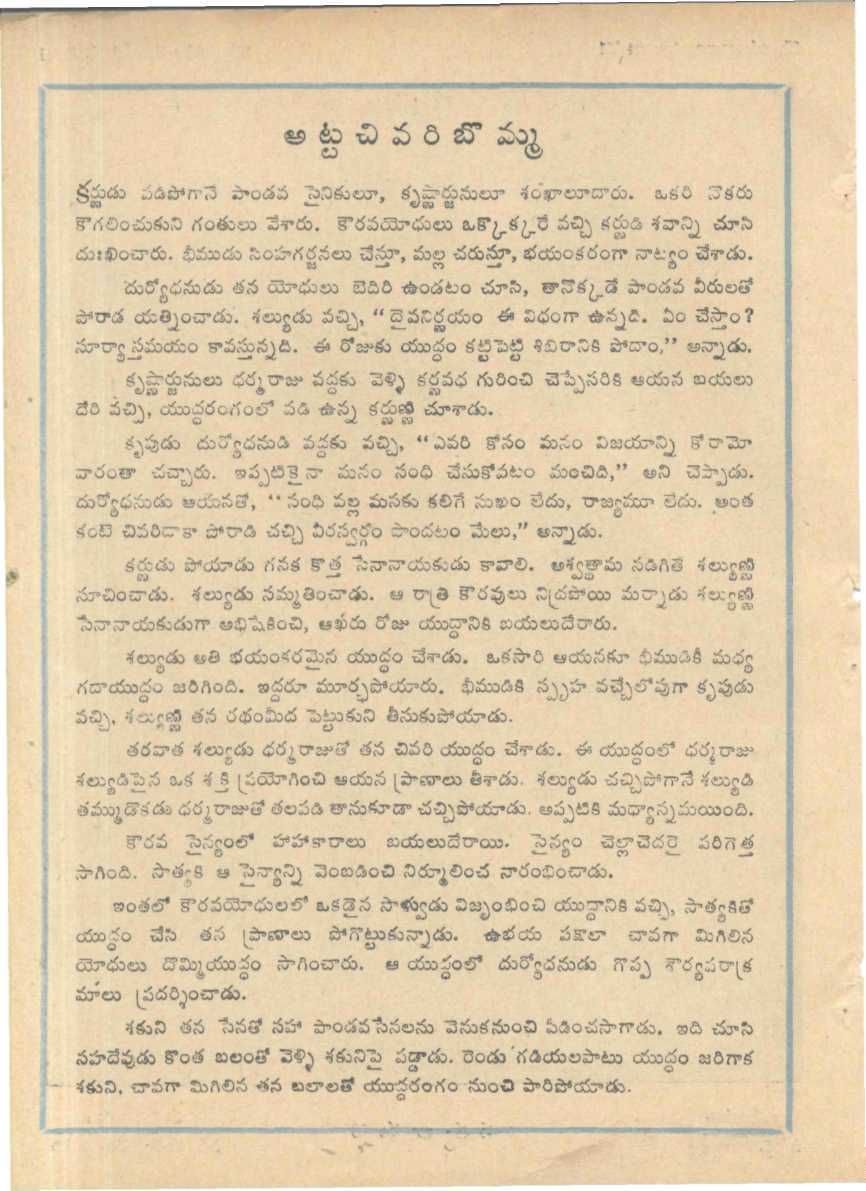 అట్ట చివరి బొమ్మ
కర్ణుడు పడిపోగానే పాండవ సైనికులూ, కృష్ణార్జునులూ శంఖాలూదారు. ఒకరి నొకరు
కౌగలించుకుని గంతులు వేశారు. కౌరవయోధులు ఒక్కొక్కరే వచ్చి కర్ణుడి శవాన్ని చూసి
దుఃఖించారు. భీముడు సింహగర్జనలు చేస్తూ, మల్ల చరుస్తూ, భయంకరంగా నాట్యం చేశాడు.
దుర్యోధనుడు తన యోధులు బెదిరి ఉండటం చూసి, తానొక్కడే పాండవ వీరులతో
పోరాడ యత్నించాడు. శల్యుడు వచ్చి, “దైవనిర్ణయం ఈ విధంగా ఉన్నది. ఏం చేస్తాం?
సూర్యాస్తమయం కావస్తున్నది. ఈ రోజుకు యుద్ధం కట్టిపెట్టి శిబిరానికి పోదాం,” అన్నాడు.
కృష్ణార్జునులు ధర్మరాజు వద్దకు వెళ్ళి కర్ణవధ గురించి చెప్పేసరికి ఆయన బయలు
దేరి వచ్చి, యుద్ధరంగంలో పడి ఉన్న కర్ణుణ్ణి చూశాడు.
కృపుడు దుర్యోధనుడి వద్దకు వచ్చి, “ఎవరి కోసం మనం విజయాన్ని కోరామో
వారంతా చచ్చారు. ఇప్పటికైనా మనం సంధి చేసుకోవటం మంచిది,” అని చెప్పాడు.
దుర్యోధనుడు ఆయనతో, “సంధి వల్ల మనకు కలిగే సుఖం లేదు, రాజ్యమూ లేదు. అంత
కంటె చివరిదాకా పోరాడి చచ్చి వీరస్వర్గం పొందటం మేలు,” అన్నాడు.
కర్ణుడు పోయాడు గనక కొత్త సేనానాయకుడు కావాలి. అశ్వత్థామ నడిగితే శల్యుణ్ణి
సూచించాడు. శల్యుడు సమ్మతించాడు. ఆ రాత్రి కౌరవులు నిద్రపోయి మర్నాడు శల్యుణ్ణి
సేనానాయకుడుగా అభిషేకించి, ఆఖరు రోజు యుద్ధానికి బయలుదేరారు.
శల్యుడు అతి భయంకరమైన యుద్ధం చేశాడు. ఒకసారి ఆయనకూ భీముడికీ మధ్య
గదాయుద్ధం జరిగింది. ఇద్దరూ మూర్ఛపోయారు. భీముడికి స్పృహ వచ్చేలోపుగా కృపుడు
వచ్చి, శల్యుణ్ణి తన రథంమీద పెట్టుకుని తీసుకుపోయాడు.
తరవాత శల్యుడు ధర్మరాజుతో తన చివరి యుద్ధం చేశాడు. ఈ యుద్ధంలో ధర్మరాజు
శల్యుడిపైన ఒక శక్తి ప్రయోగించి ఆయన ప్రాణాలు తీశాడు. శల్యుడు చచ్చిపోగానే శల్యుడి
తమ్ముడొకడు ధర్మరాజుతో తలపడి తానుకూడా చచ్చిపోయాడు. అప్పటికి మధ్యాన్నమయింది.
కౌరవ సైన్యంలో హాహాకారాలు బయలుదేరాయి. సైన్యం చెల్లాచెదరై పరిగెత్త
సాగింది. సాత్యకి ఆ సైన్యాన్ని వెంబడించి నిర్మూలించ నారంభించాడు.
ఇంతలో కౌరవయోధులలో ఒకడైన సాళ్వుడు విజృంభించి యుద్ధానికి వచ్చి, సాత్యకితో
యుద్ధం చేసి తన ప్రాణాలు పోగొట్టుకున్నాడు. ఉభయ పక్షాలా చావగా మిగిలిన
యోధులు దొమ్మియుద్ధం సాగించారు. ఆ యుద్ధంలో దుర్యోధనుడు గొప్ప శౌర్యపరాక్ర
మాలు ప్రదర్శించాడు.
శకుని తన సేనతో సహా పాండవసేనలను వెనుకనుంచి పీడించసాగాడు. ఇది చూసి
సహదేవుడు కొంత బలంతో వెళ్ళి శకునిపై పడ్డాడు. రెండు గడియలపాటు యుద్ధం జరిగాక
శకుని, చావగా మిగిలిన తన బలాలతో యుద్ధరంగం నుంచి పారిపోయాడు.